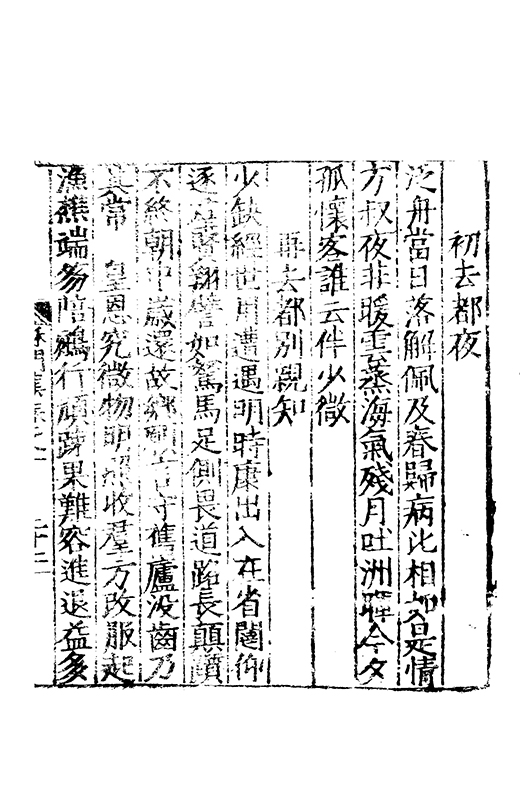 初去都夜
泛舟當日落解佩及春歸病比相如日是情
方叔夜非暖雲蒸海氣殘月吐洲暉今夕
孤懷客誰云伴少微
再去都別親知
少缺經世用遭遇明時康出入在省闥仰
逐群賢翱譬如駑馬足側畏道路長顛隕
不終朝中歲還故鄉守舊廬沒齒乃
其常 皇恩究微物明照收羣方改服起
漁樵端笏陪鵷行頑踈果難容進退益多
蘇門集卷之 二十二